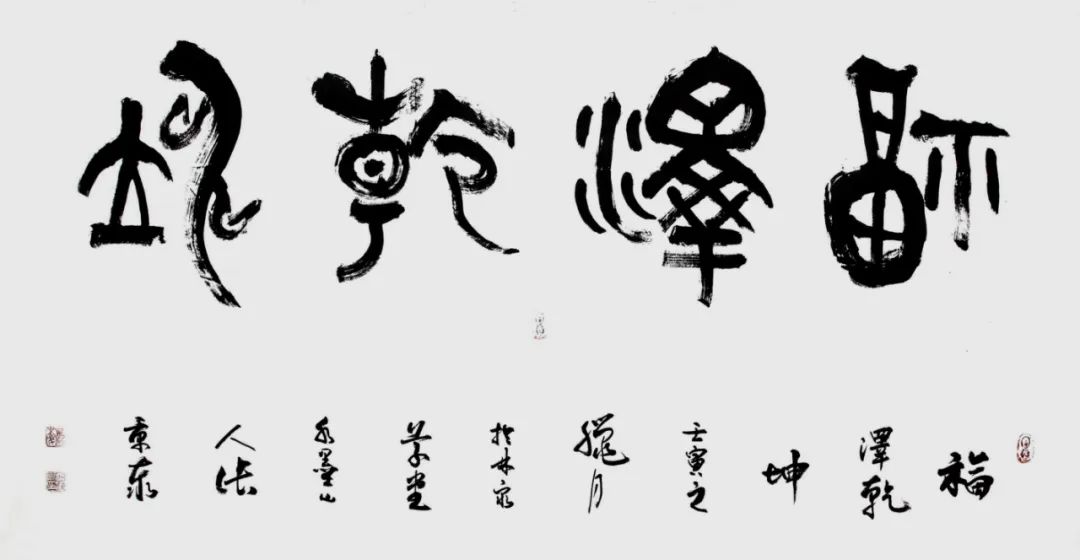 福澤乾坤
福
澤乾
坤
壬寅之
臘月
於林泉
草堂
水墨山
人張